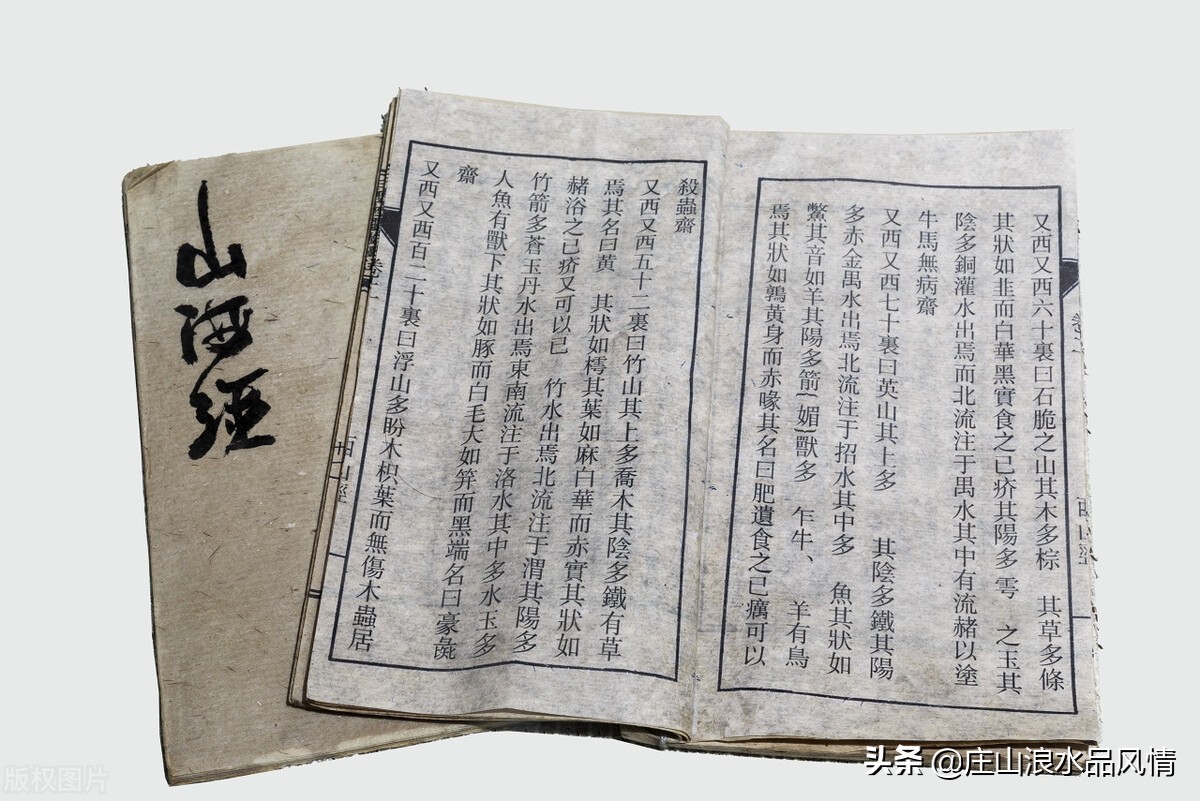 山海經
又西又西六十裏曰石脆之山其木多棕 其草多條
其狀如韭而白華黑實食之已疥其陽多 雩 之玉其
陰多銅灌水出焉而北流注于禺水其中有流赭以塗
牛馬無病齋
又西又西七十裏曰英山其上多 其陰多鐵其陽
多赤金禺水出焉北流注于招水其中多 魚其狀如
鱉其音如羊其陽多箭{媚}獸多 乍牛、 羊有鳥
焉其狀如鶉黃身而赤喙其名曰肥遺食之已癘可以
殺蟲齋
又西又西五十二裏曰竹山其上多喬木其陰多鐵有草
焉其名曰黃 其狀如樗其葉如麻白華而赤實其狀如
赭浴之已疥又可以已 竹水出焉北流注于渭其陽多
竹箭多蒼玉丹水出焉東南流注于洛水其中多水玉多
人魚有獸下其狀如豚而白毛大如笄而黑端名曰豪彘
齋
又西又西百二十裏曰浮山多盼木枳葉而無傷木蟲居
西山經
十二
版权图片
头条 @庄山浪水品风情